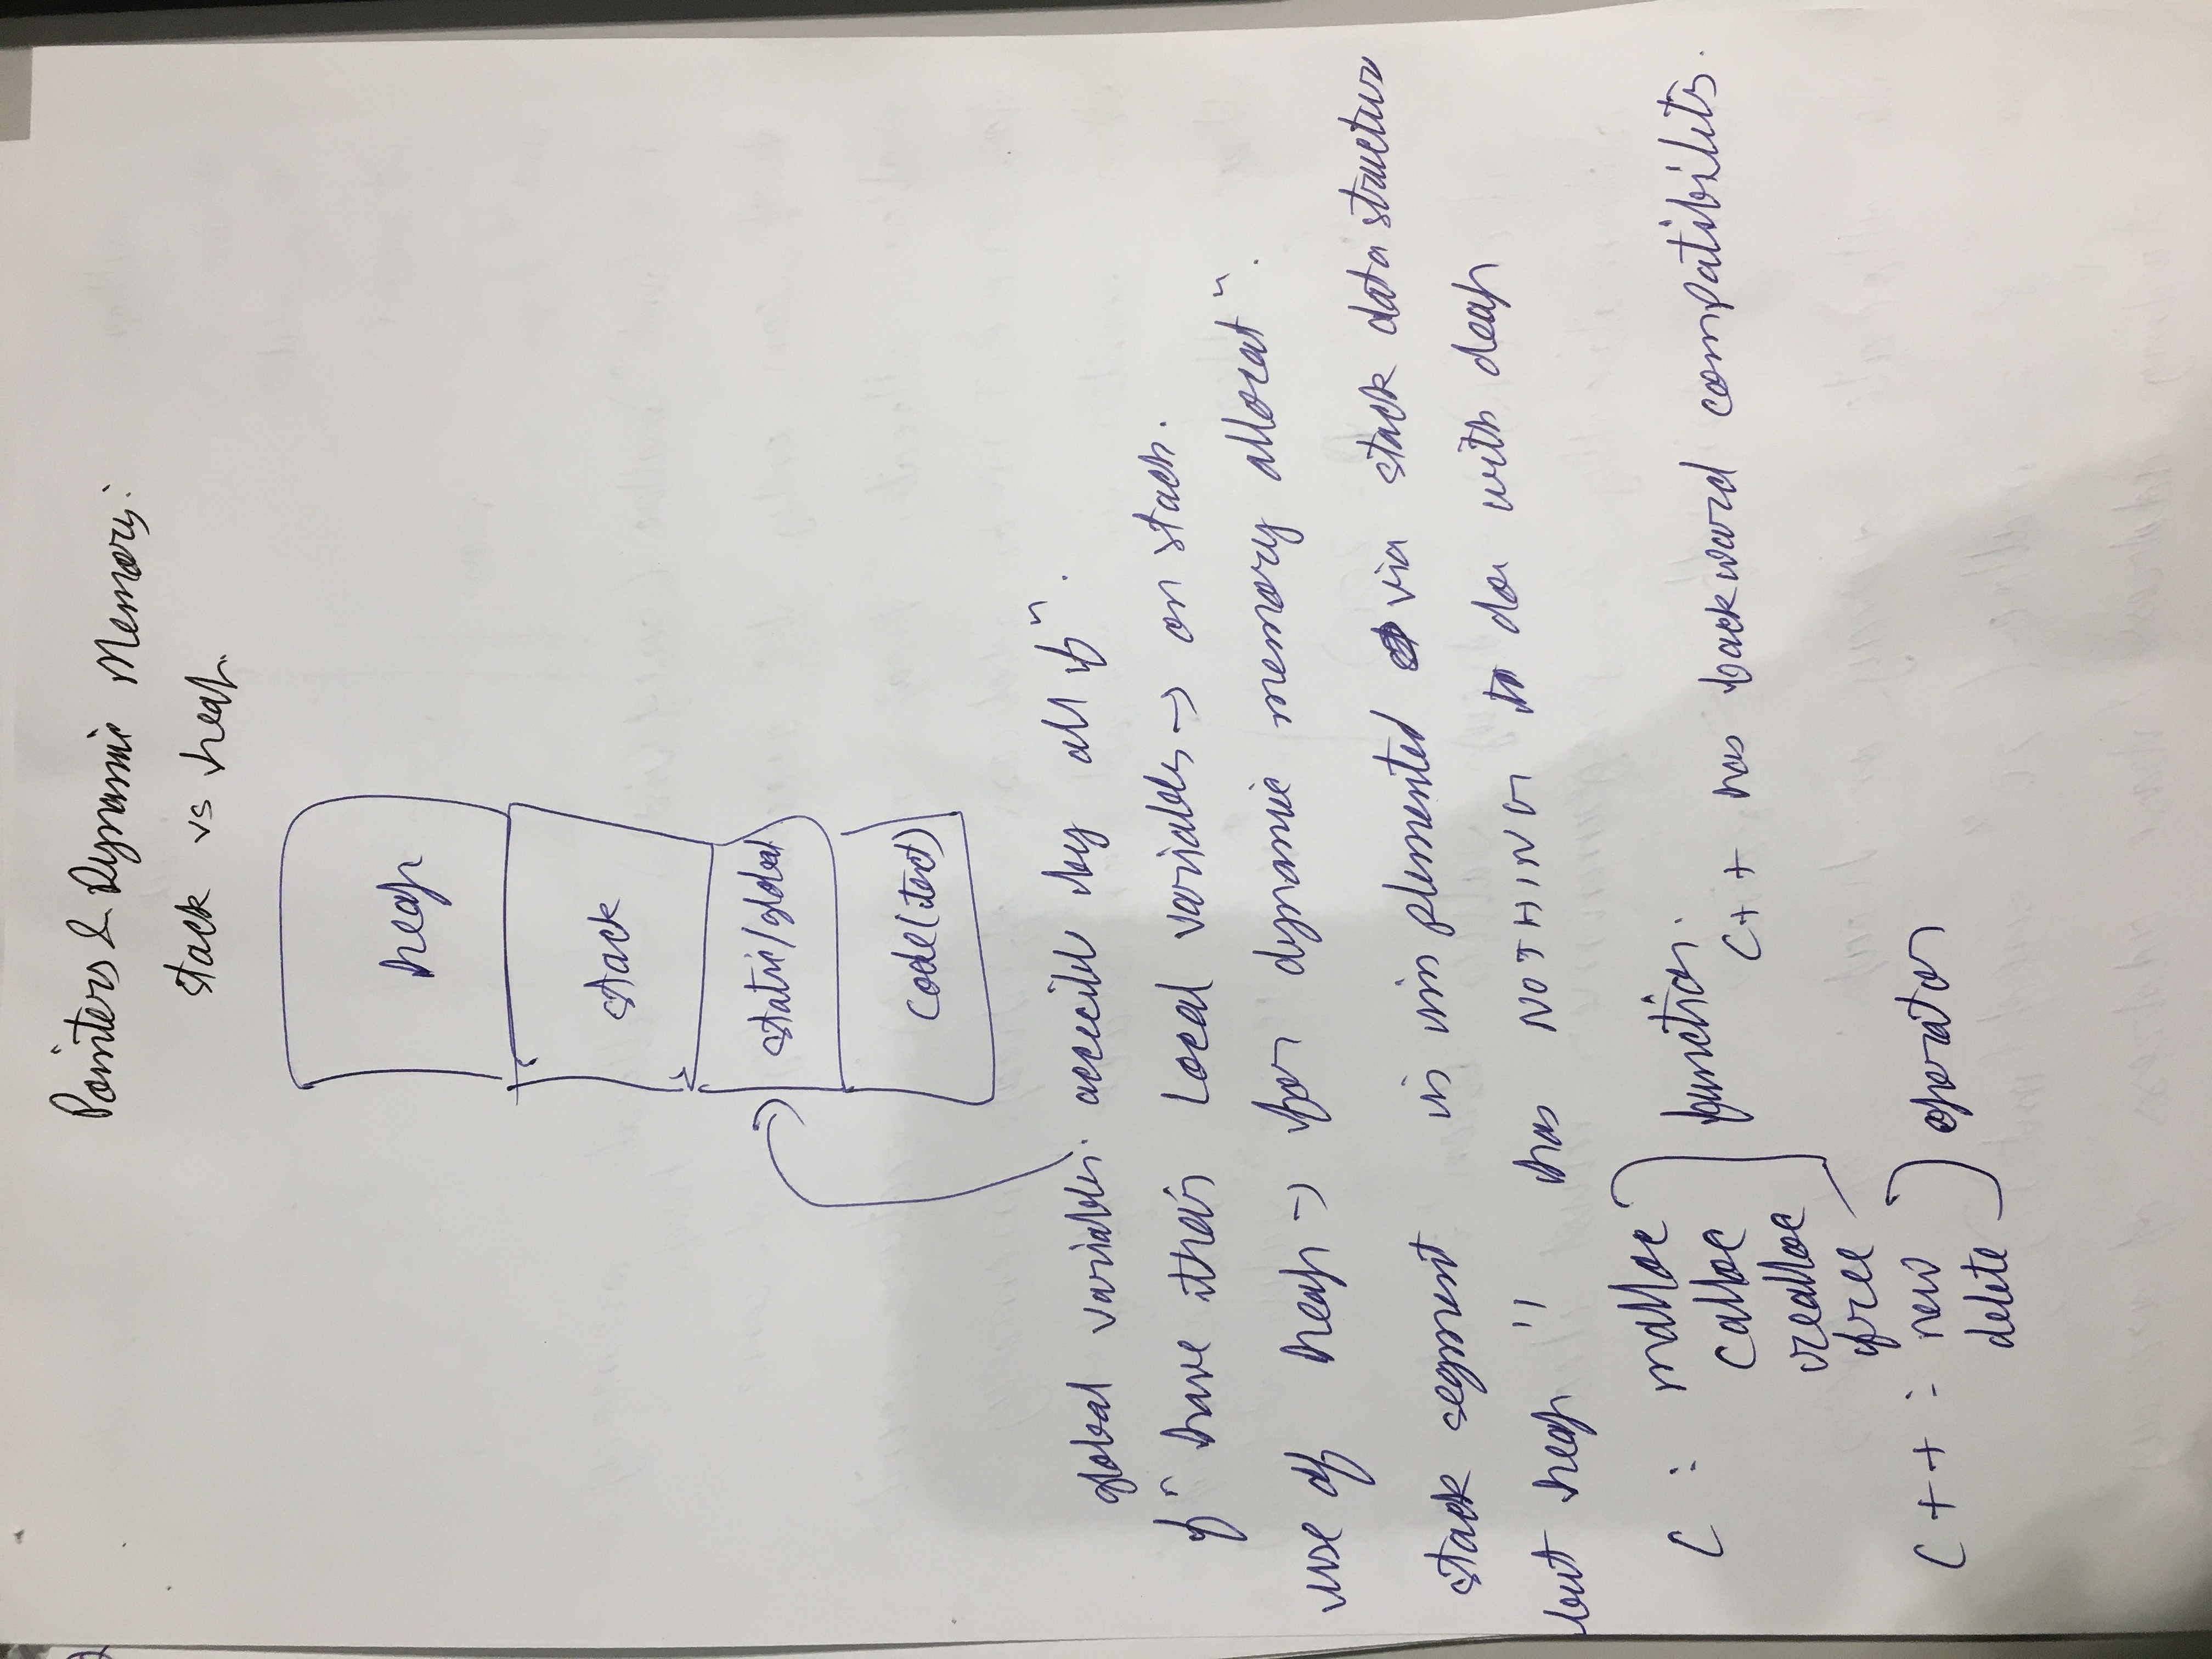 Pointers & Dynamic Memory:
stack vs heap.
heap
stack
static/global
code(text)
global variables. by all fⁿ.
fⁿ have their Local variables → on stack.
use of heap → for dynamic memory allocatⁿ.
stack segment is implemented via stack data structure
but heap " has NOTHING to do with heap
C : malloc
calloc
realloc
free
function.
C++ has backward compatibility.
C++ : new
delete
operator